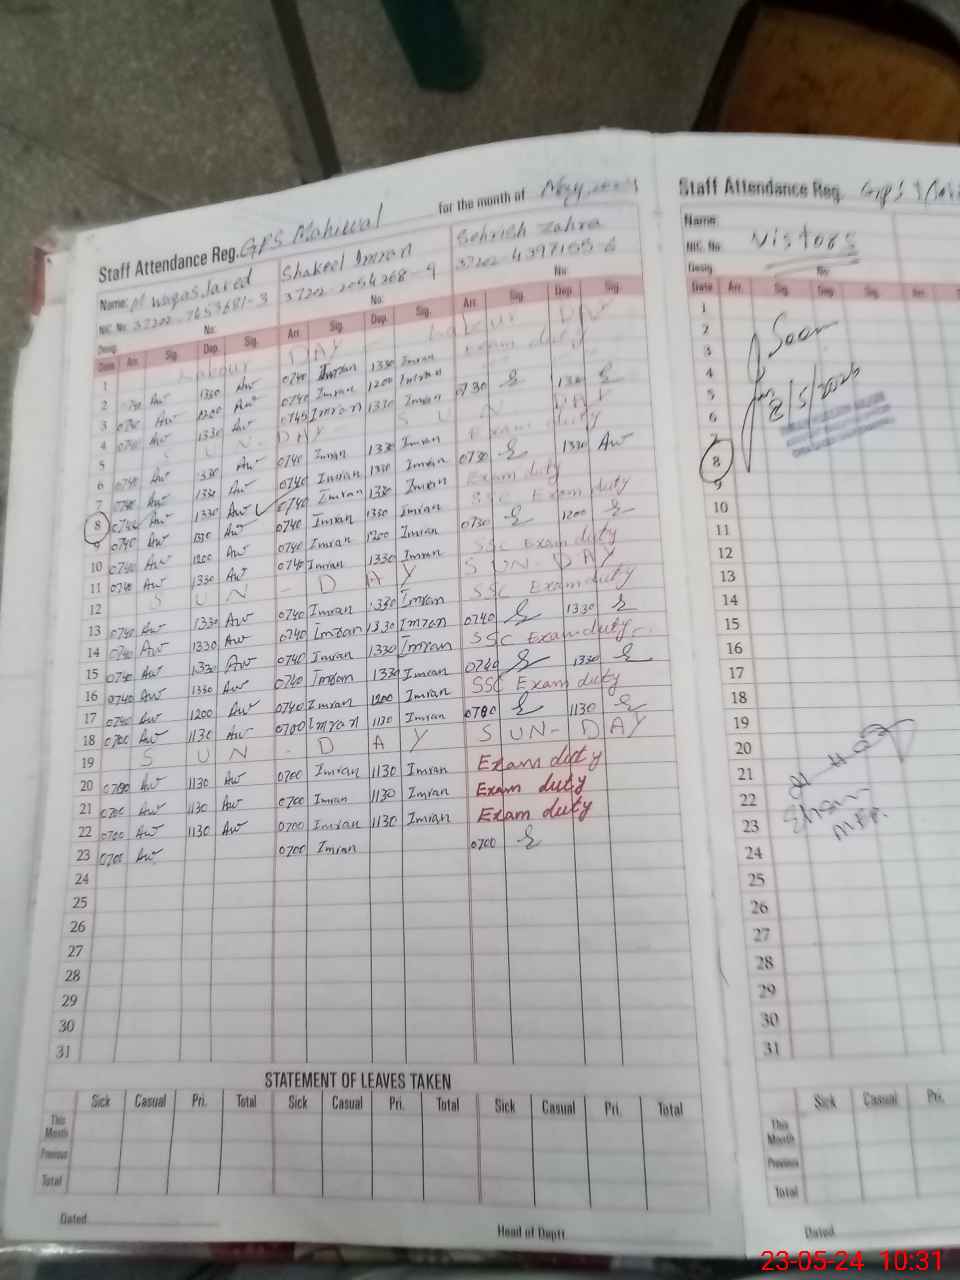 Staff Attendance Reg. GPS Mahiwal for the month of May, 2024
Name: M Waqas Javed Shakeel Imran Sehrish Zahra
NIC. No. 37202-7657681-3 37202-2054268-9 37202-4397155-6
No: No: No
Desig
Date Arr. Sig. Dep. Sig. Arr. Sig. Dep. Sig. Arr. Sig. Dep. Sig.
1 Labour DAY - Labour DAY
2 0740 Aw 1330 Aw 0740 Imran 1330 Imran Exam duty
3 0740 Aw 1200 Aw 0740 Imran 1200 Imran 0730 1200
4 0740 Aw 1330 Aw 0745 Imran 1330 Imran
5 SUN-DAY SUN DAY
6 0740 Aw 1330 Aw 0740 Imran 1330 Imran Exam duty
7 0740 Aw 1330 Aw 0740 Imran 1330 Imran 0730 1330 Aw
8 0740 Aw 1330 Aw 0740 Imran 1330 Imran Exam duty
9 0740 Aw 1330 Aw 0740 Imran 1330 Imran SSC Exam duty
10 0740 Aw 1200 Aw 0740 Imran 1200 Imran 0730 1200
11 0740 Aw 1330 Aw 0740 Imran 1330 Imran SSC Exam duty
12 SUN - DAY SUN-DAY
13 0740 Aw 1330 Aw 0740 Imran 1330 Imran SSC Exam duty
14 0740 Aw 1330 Aw 0740 Imran 1330 Imran 0740 1330
15 0740 Aw 1330 Aw 0740 Imran 1330 Imran SSC Exam duty
16 0740 Aw 1330 Aw 0740 Imran 1330 Imran 0740 1330
17 0740 Aw 1200 Aw 0740 Imran 1200 Imran SSC Exam duty
18 0700 Aw 1130 Aw 0700 Imran 1130 Imran 0700 1130
19 SUN - DAY SUN-DAY
20 0700 Aw 1130 Aw 0700 Imran 1130 Imran Exam duty
21 0700 Aw 1130 Aw 0700 Imran 1130 Imran Exam duty
22 0700 Aw 1130 Aw 0700 Imran 1130 Imran Exam duty
23 0700 Aw 0700 Imran 0700
24
25
26
27
28
29
30
31
STATEMENT OF LEAVES TAKEN
Sick Casual Pri. Total Sick Casual Pri. Total Sick Casual Pri. Total
This Month
Previous
Total
Dated
Head of Deptt
Staff Attendance Reg. GPS
Name:
NIC. No. Visitors
Desig No
Date Arr. Sig. Dep. Sig. Arr.
1
2
3 Seen
4
5
6
7
8
9
10
11
12
13
14
15
16
17
18
19
20
21
22
23
24
25
26
27
28
29
30
31
Sick Casual Pri.
This Month
Previous
Total
Dated
23-05-24 10:31